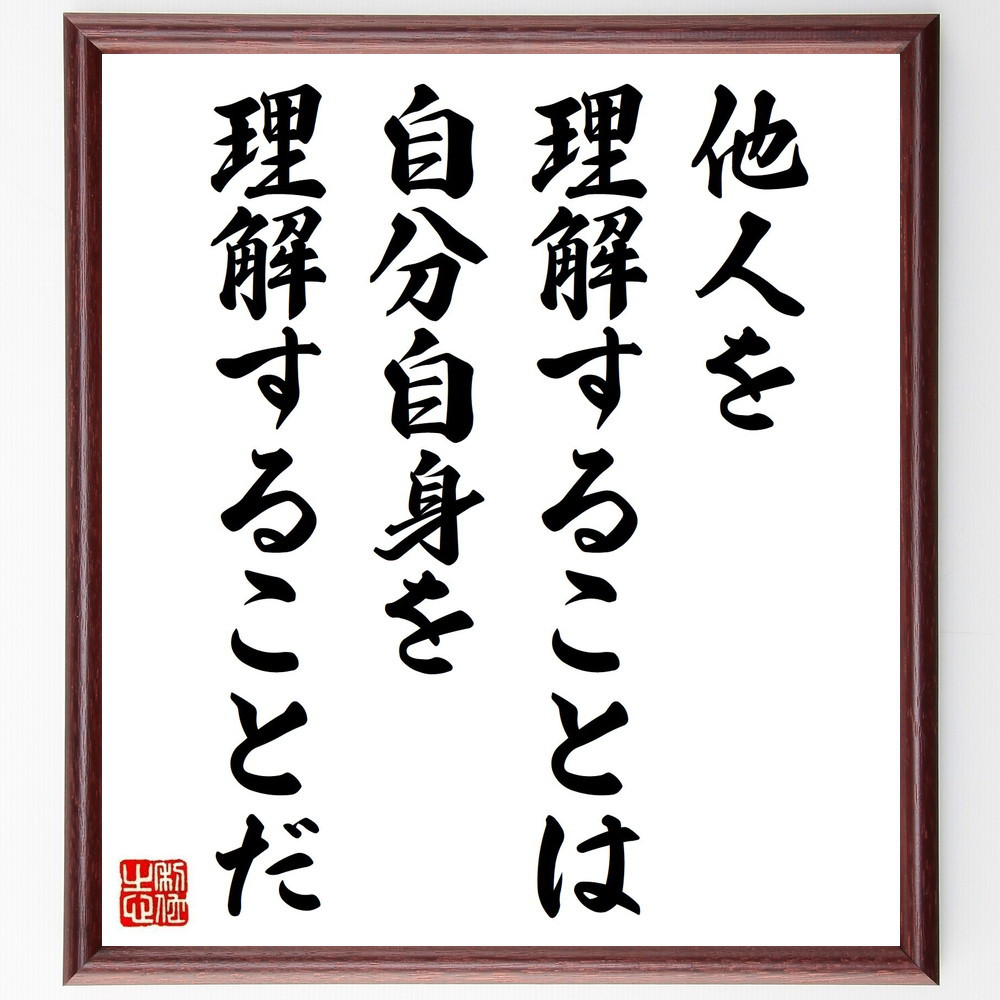 他人を
理解することは
自分自身を
理解することだ